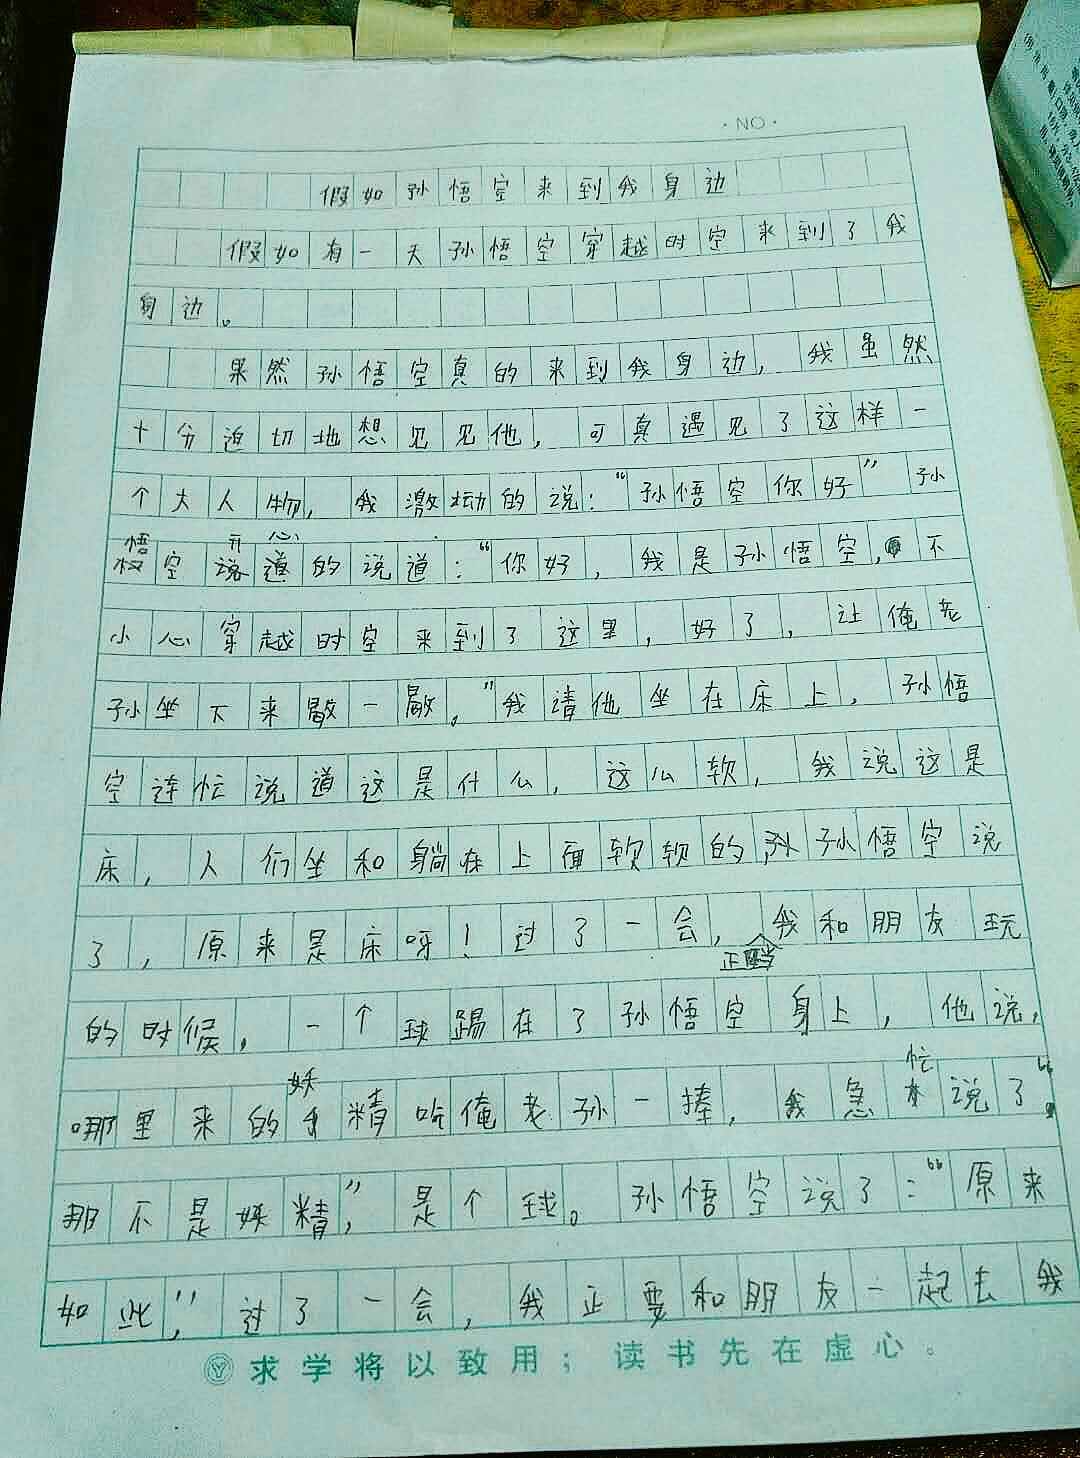 ·NO·
假如孙悟空来到我身边
假如有一天孙悟空穿越时空来到了我
身边。
果然孙悟空真的来到我身边，我虽然
十分迫切地想见见他，可真遇见了这样一
个大人物，我激动的说："孙悟空你好"孙
悟空开心的说道："你好，我是孙悟空，不
小心穿越时空来到了这里，好了，让俺老
孙坐下来歇一歇。"我请他坐在床上，孙悟
空连忙说道这是什么，这么软，我说这是
床，人们坐和躺在上面软软的孙悟空说
了，原来是床呀！过了一会，正当我和朋友玩
的时候，一个球踢在了孙悟空身上，他说，
哪里来的妖精吃俺老孙一捧，我急忙说了"
那不是妖精，"是个球。孙悟空说了："原来
如此，"过了一会，我正要和朋友一起去我
求学将以致用；读书先在虚心。